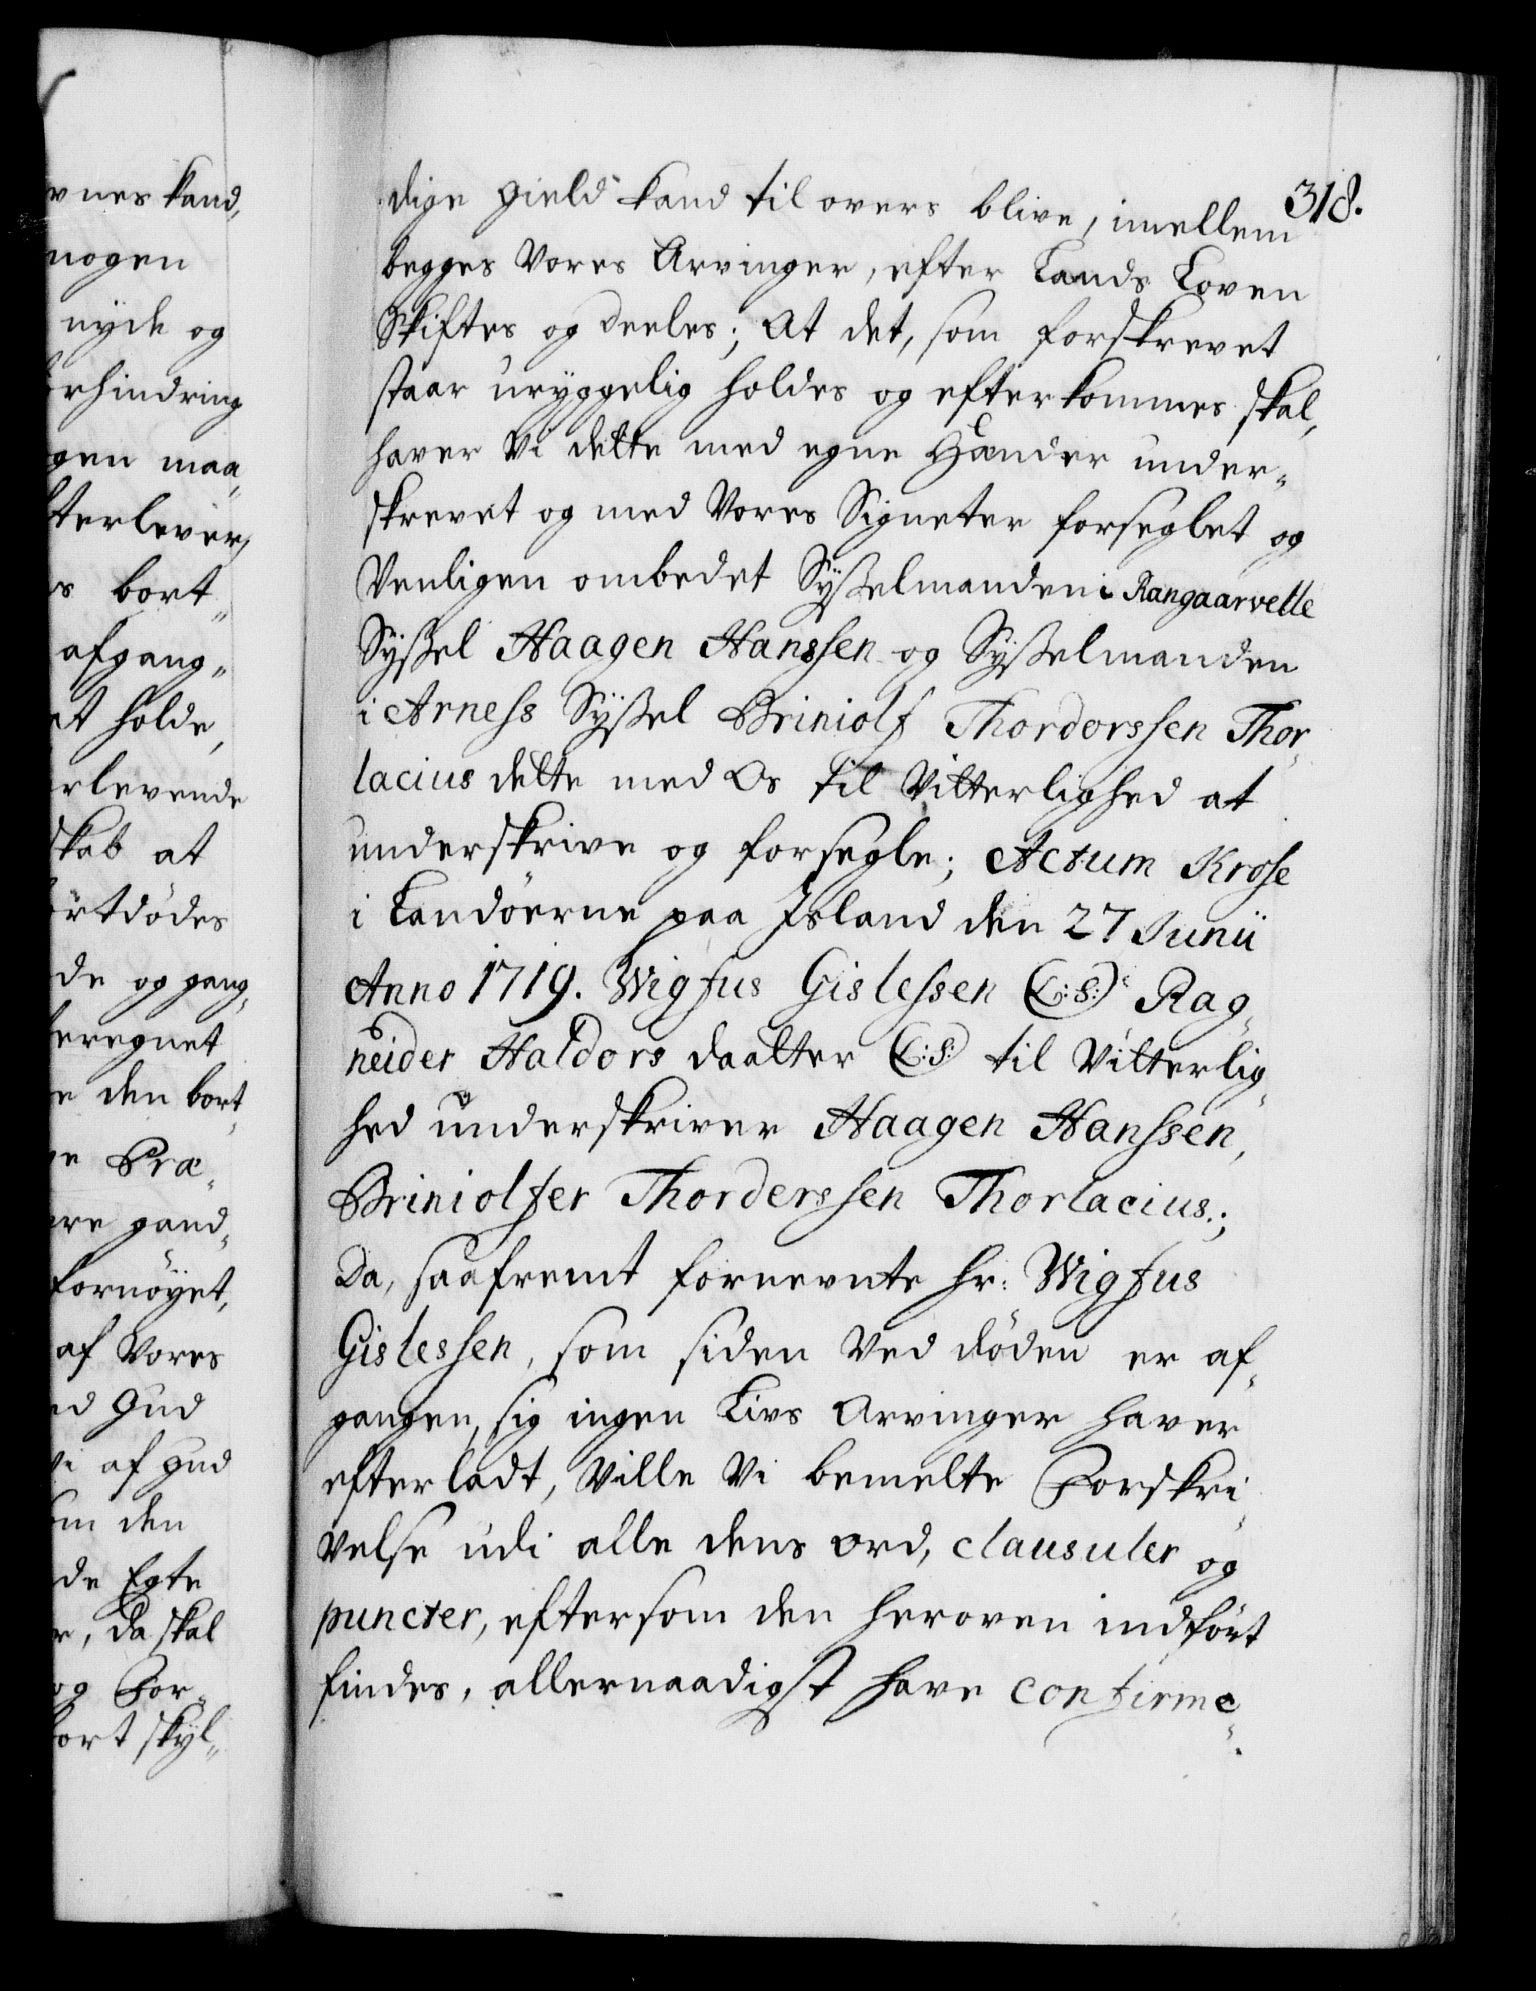 vnes kand,
nogen
nyde og
orhindring
gen maa„
fterlever,
s bort„
afgang„
et holde,
rlevende
skab at
ortdödes
de og gang„
beregnet
e den bort„
ve Præ„
ere gand„
fornöyet,
af Vores
ed Gud
Vi af Gud
om den
de Egte
r, da skal
og For„
bort skyl„
318.
dige gield kand til overs blive, imellem
begges Vores Arvinger, efter Lands Loven
Skiftes og deeles; At det, som forskrevet
staar uryggelig holdes og efterkommes skal,
haver Vi dette med egne Hænder under„
skrevet og med Vores Signeter forseglet og
Venligen ombedet Sysselmanden i Rangaarvelle
Syssel Haagen Hanssen og Sysselmanden
i Arness Syssel Briniolf Thordorssen Thor„
lacius dette med Os til Vitterlighed at
underskrive og forsegle; Actum Krose
i Landöerne paa Island den 27 Junii
Anno 1719. Wigfus Gislessen (L:S:) Rag„
neider Haldors daatter (L:S:) til Vitterlig„
hed underskriver Haagen Hanssen,
Briniolfer Thorderssen Thorlacius.;
Da, saafremt fornevnte Hr: Wigfus
Gislessen, som siden Ved döden er af„
gangen, sig ingen Livs Arvinger haver
efterladt, Ville Vi bemelte Forskri„
velse udi alle dens ord, clausuler og
puncter, eftersom den heroven indfört
findes, allernaadigst have confirme„